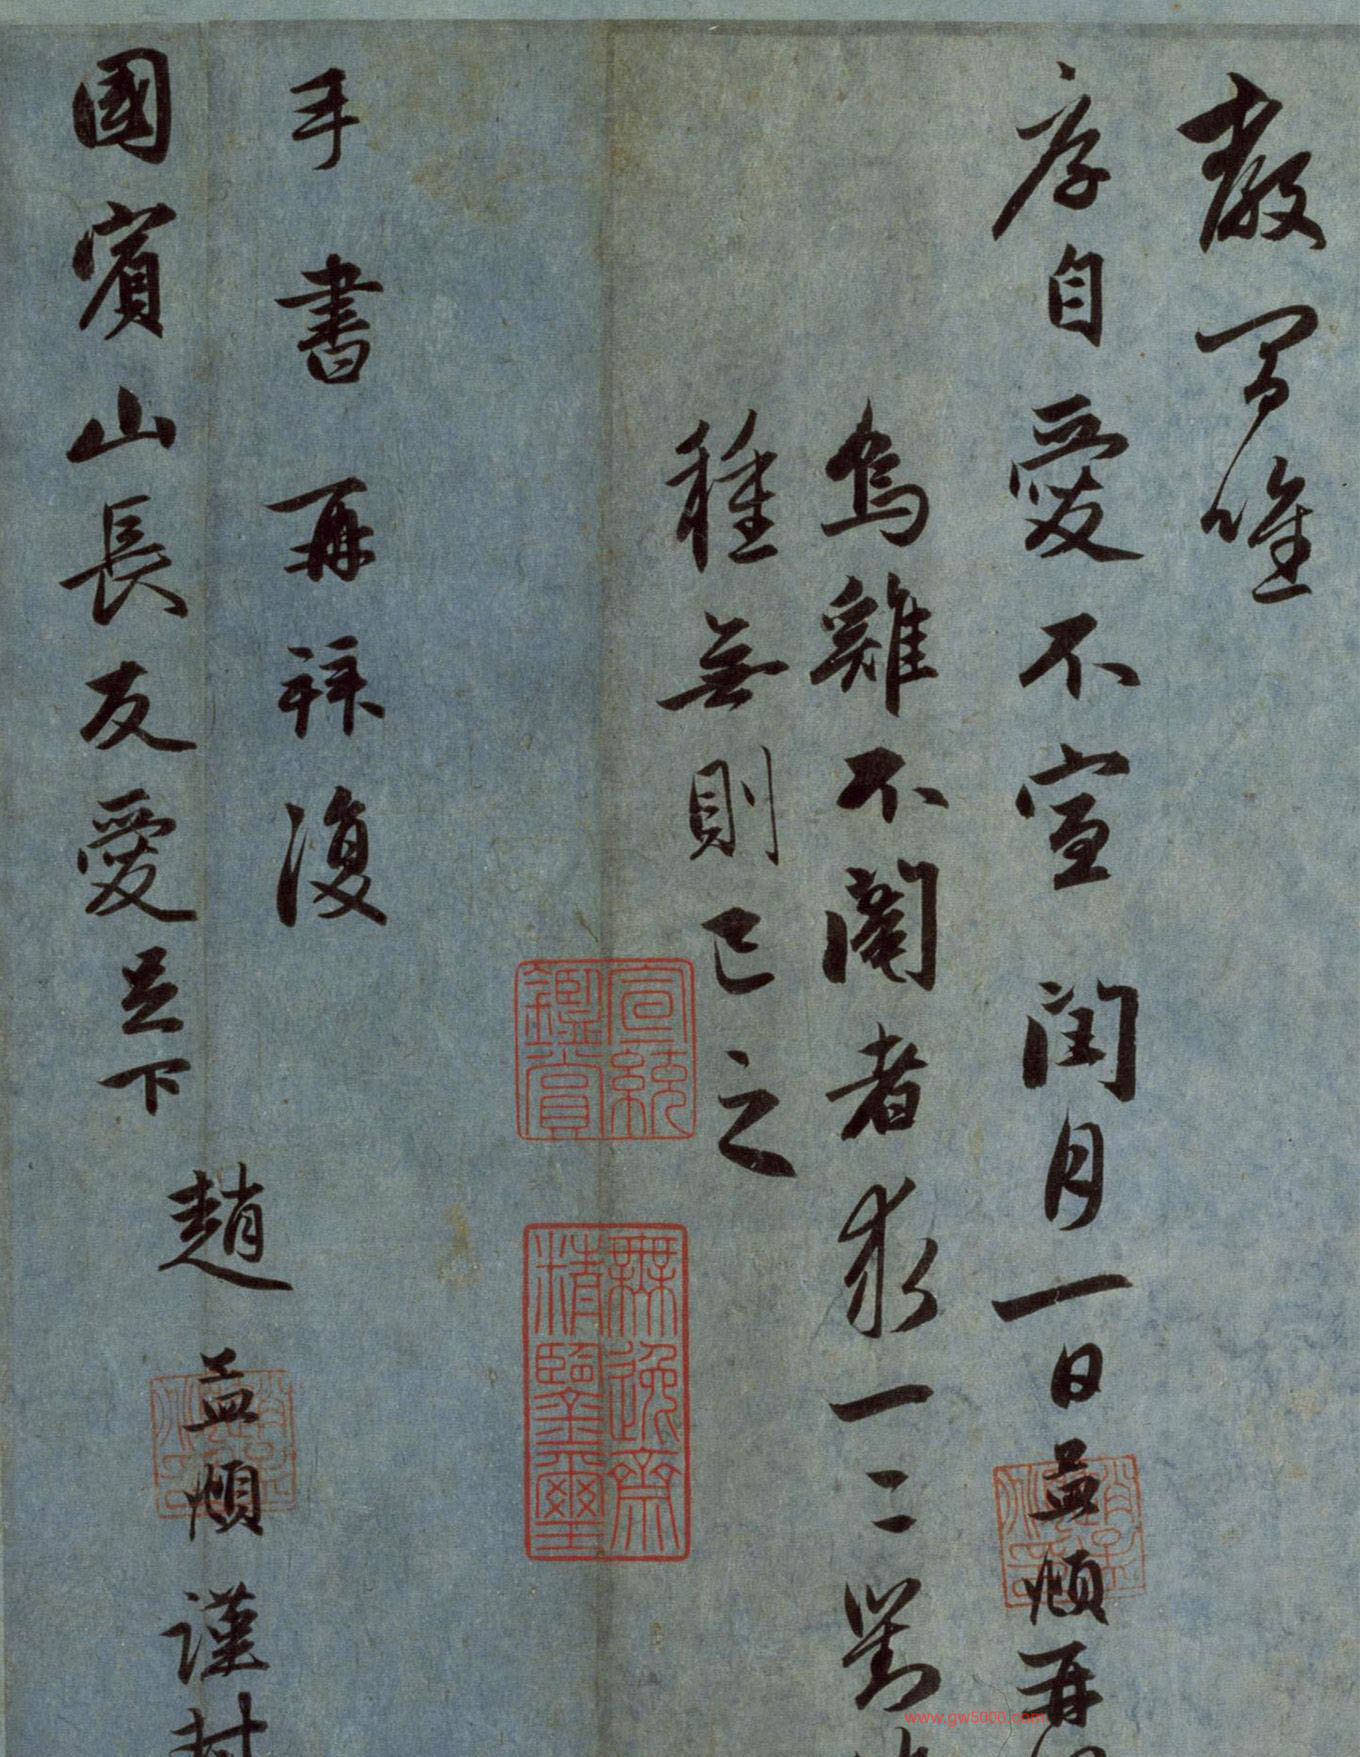 嚴寒唯
序自愛不宣 閏月一日孟頫再
烏雞不闇者求一二對
種無則已之
手書再拜復
國賓山長友愛足下
趙孟頫謹封
宣統鑑賞
無逸齋精鑒璽
www.gw5000.com